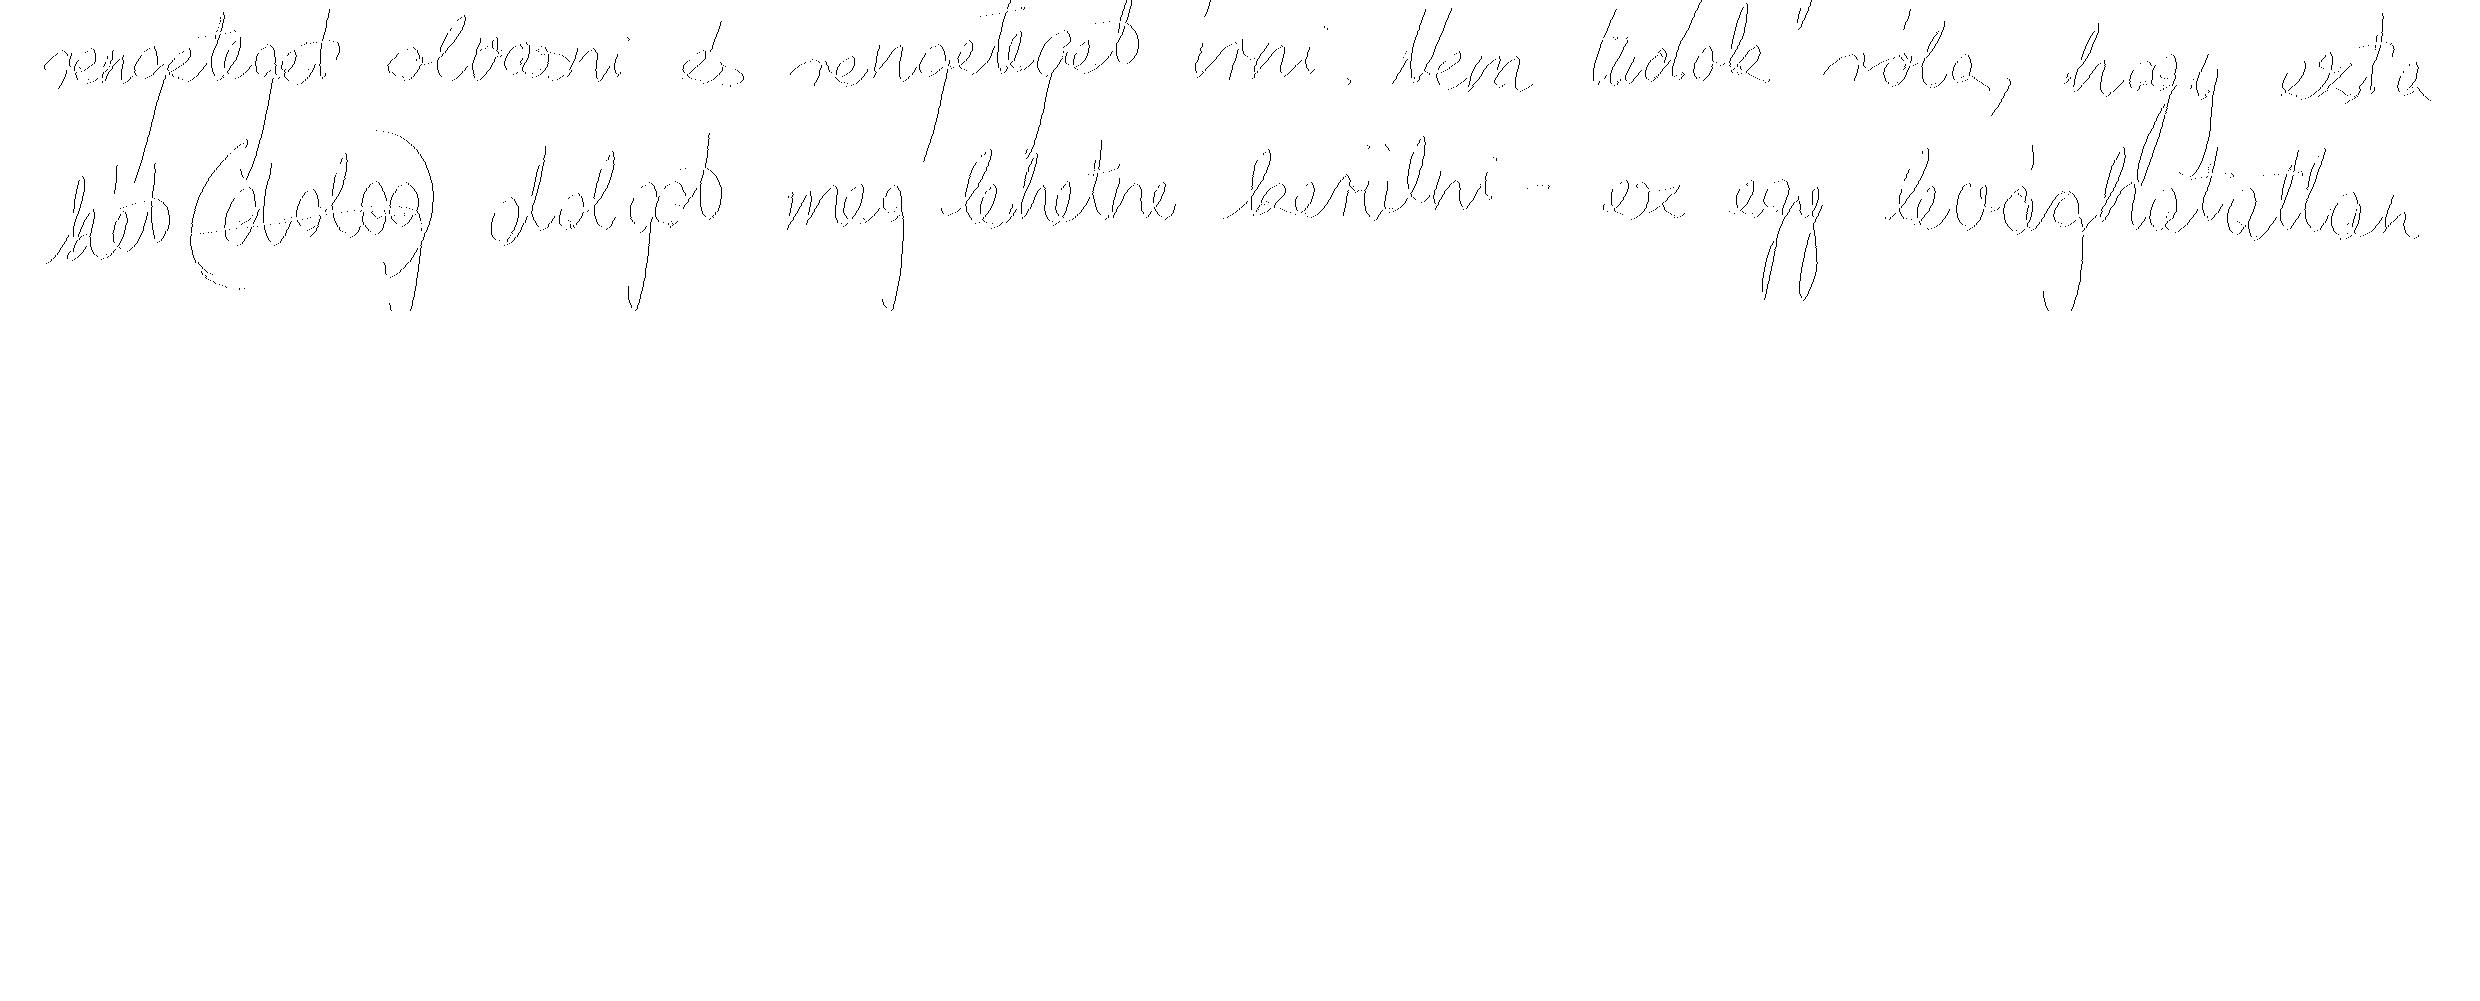 rengeteget olvasni és rengeteget írni. Nem tudok róla, hogy ezt a
két (dolog) dolgot meg lehetne kerülni - ez egy levághatatlan